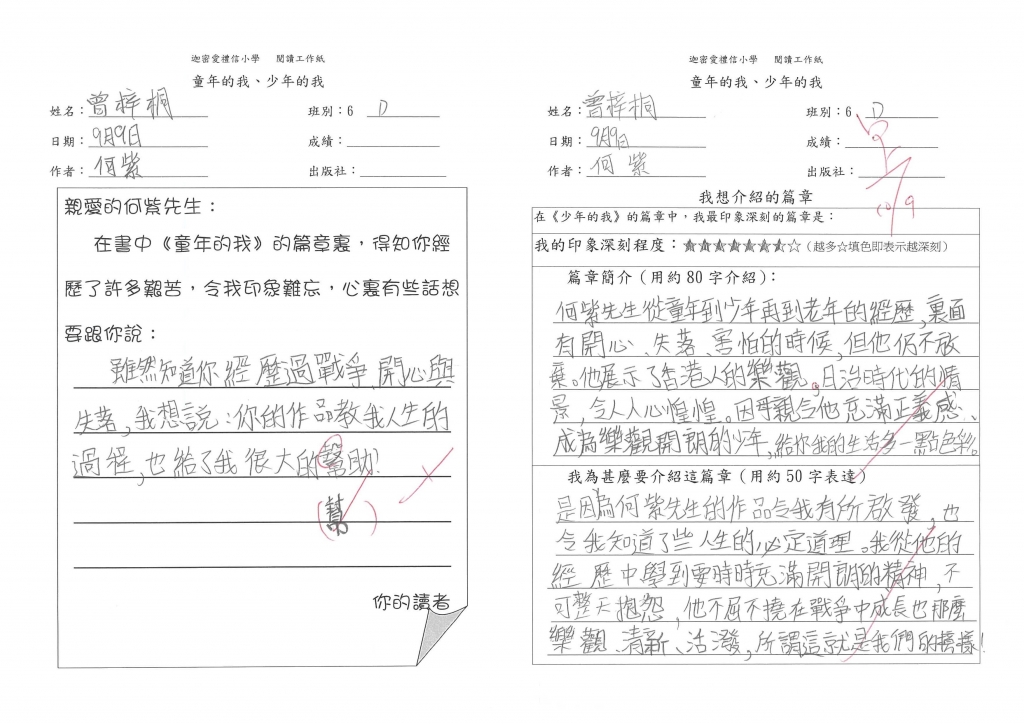 迦密愛禮信小學 閱讀工作紙
童年的我、少年的我
姓名：曾梓桐 班別：6 D
日期：9月9日 成績：
作者：何紫 出版社：
親愛的何紫先生：
在書中《童年的我》的篇章裏，得知你經
歷了許多艱苦，令我印象難忘，心裏有些話想
要跟你說：
雖然知道你經歷過戰爭、開心與
失落，我想說：你的作品教我人生的
過程，也給了我很大的幫助!
(幫)
你的讀者
迦密愛禮信小學 閱讀工作紙
童年的我、少年的我
姓名：曾梓桐 班別：6 D
日期：9月9日 成績：
作者：何紫 出版社：
10/9
我想介紹的篇章
在《少年的我》的篇章中，我最印象深刻的篇章是：
我的印象深刻程度：★★★★★★★☆（越多☆填色即表示越深刻）
篇章簡介（用約 80 字介紹）：
何紫先生從童年到少年再到老年的經歷，裏面
有開心、失落、害怕的時候，但他仍不放
棄。他展示了香港人的樂觀。日治時代的情
景，令人人心惶惶。因母親令他充滿正義感、
成為樂觀開朗的少年，給你我的生活多一點色彩。
我為甚麼要介紹這篇章（用約 50 字表達）
是因為何紫先生的作品令我有所啟發，也
令我知道了些人生的必定道理。我從他的
經歷中學到要時時充滿開朗的精神，不
可整天抱怨，他不屈不撓在戰爭中成長也那麼
樂觀、清新、活潑，所謂這就是我們的榜樣!